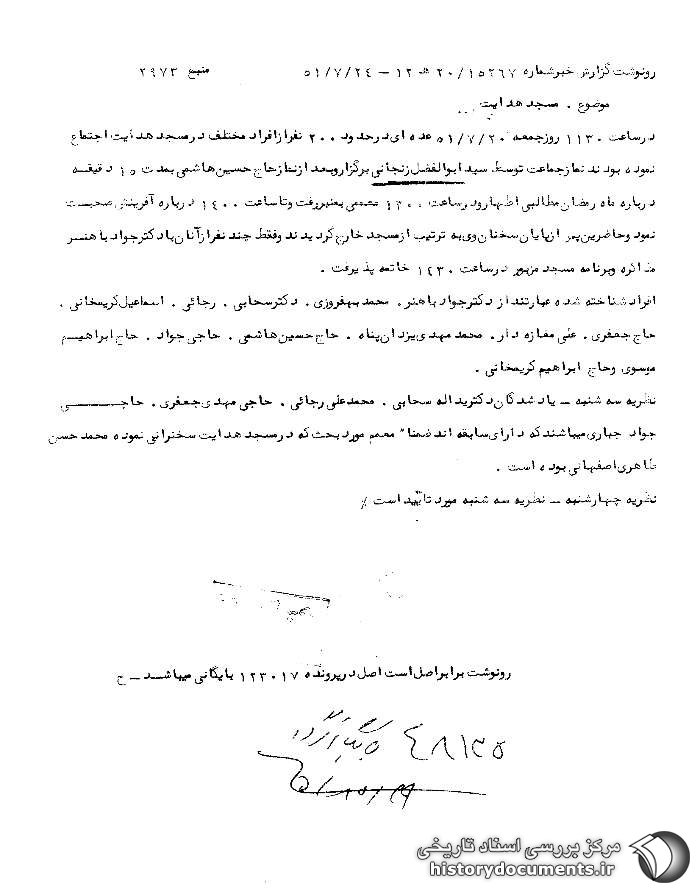 رونوشت گزارش خبر شماره ۱۵۲۶۷/۲۰ هـ ۱۲ – ۵۱/۷/۲۴ منبع ۲۹۷۳
موضوع . مسجد هدایت
در ساعت ۱۱۳۰ روز جمعه ۵۱/۷/۲۰ عده ای در حدود ۲۰۰ نفر از افراد مختلف در مسجد هدایت اجتماع
نموده بودند نماز جماعت توسط سید ابوالفضل زنجانی برگزار و بعد از نماز حاج حسین هاشمی بمدت ۱۵ دقیقه
درباره ماه رمضان مطالبی اظهار و در ساعت ۱۳۰۰ معممی بمنبر رفت و تا ساعت ۱۴۰۰ درباره آفرینش صحبت
نمود و حاضرین پس از پایان سخنان وی به ترتیب از مسجد خارج گردیدند و فقط چند نفر از آنان با دکتر جواد باهنر
مذاکره و برنامه مسجد مزبور در ساعت ۱۴۳۰ خاتمه پذیرفت .
افراد شناخته شده عبارتند از دکتر جواد باهنر . محمد بهفروزی . دکتر سحابی . رجائی . اسماعیل کریمخانی .
حاج جعفری . علی مغازه دار . محمد مهدی یزدان پناه . حاج حسین هاشمی . حاجی جواد . حاج ابراهیم
موسوی و حاج ابراهیم کریمخانی .
نظریه سه شنبه – یاد شدگان دکتر یداله سحابی . محمد علی رجائی . حاجی مهدی جعفری . حاجی
جواد جباری میباشند که دارای سابقه اند ضمنا" معمم مورد بحث که در مسجد هدایت سخنرانی نموده محمد حسن
طاهری اصفهانی بوده است .
نظریه چهارشنبه – نظریه سه شنبه مورد تائید است /
رونوشت برابر اصل است اصل در پرونده ۱۲۳۰۱۷ بایگانی میباشد – ح
۴۸۱۳۵
مرکز بررسی اسناد تاریخی
historydocuments.ir